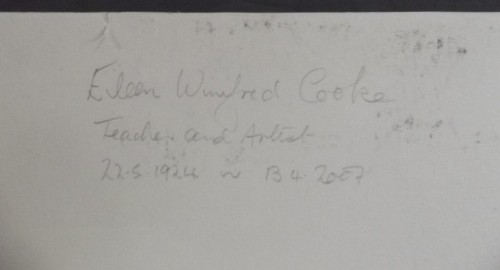 Eileen Winifred Cooke
Teacher and Artist
22.5.1924 ~ 13.4.2007